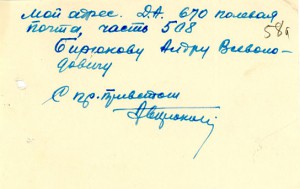 Мой адрес. Д.А. 670 полевая
почта, часть 508
Бирюкову Всеволо-
довичу
С приветом
58а